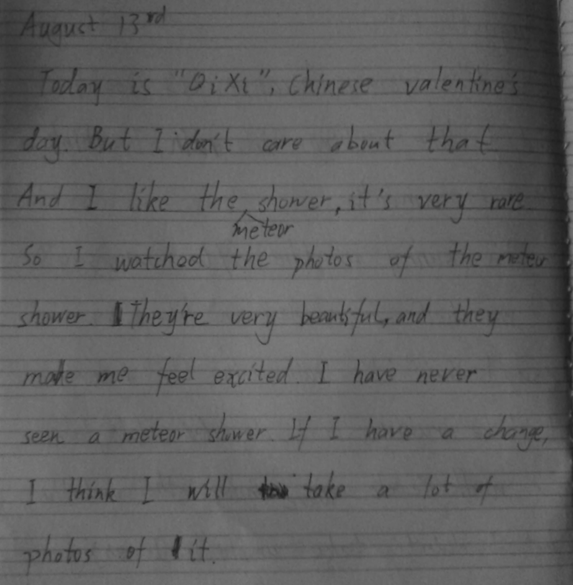 August 13rd
Today is "QiXi", Chinese valentine's
day. But I don't care about that
And I like the meteor shower, it's very rare.
So I watched the photos of the meteor
shower. They're very beautiful, and they
made me feel excited. I have never
seen a meteor shower. If I have a change,
I think I will take a lot of
photos of it.